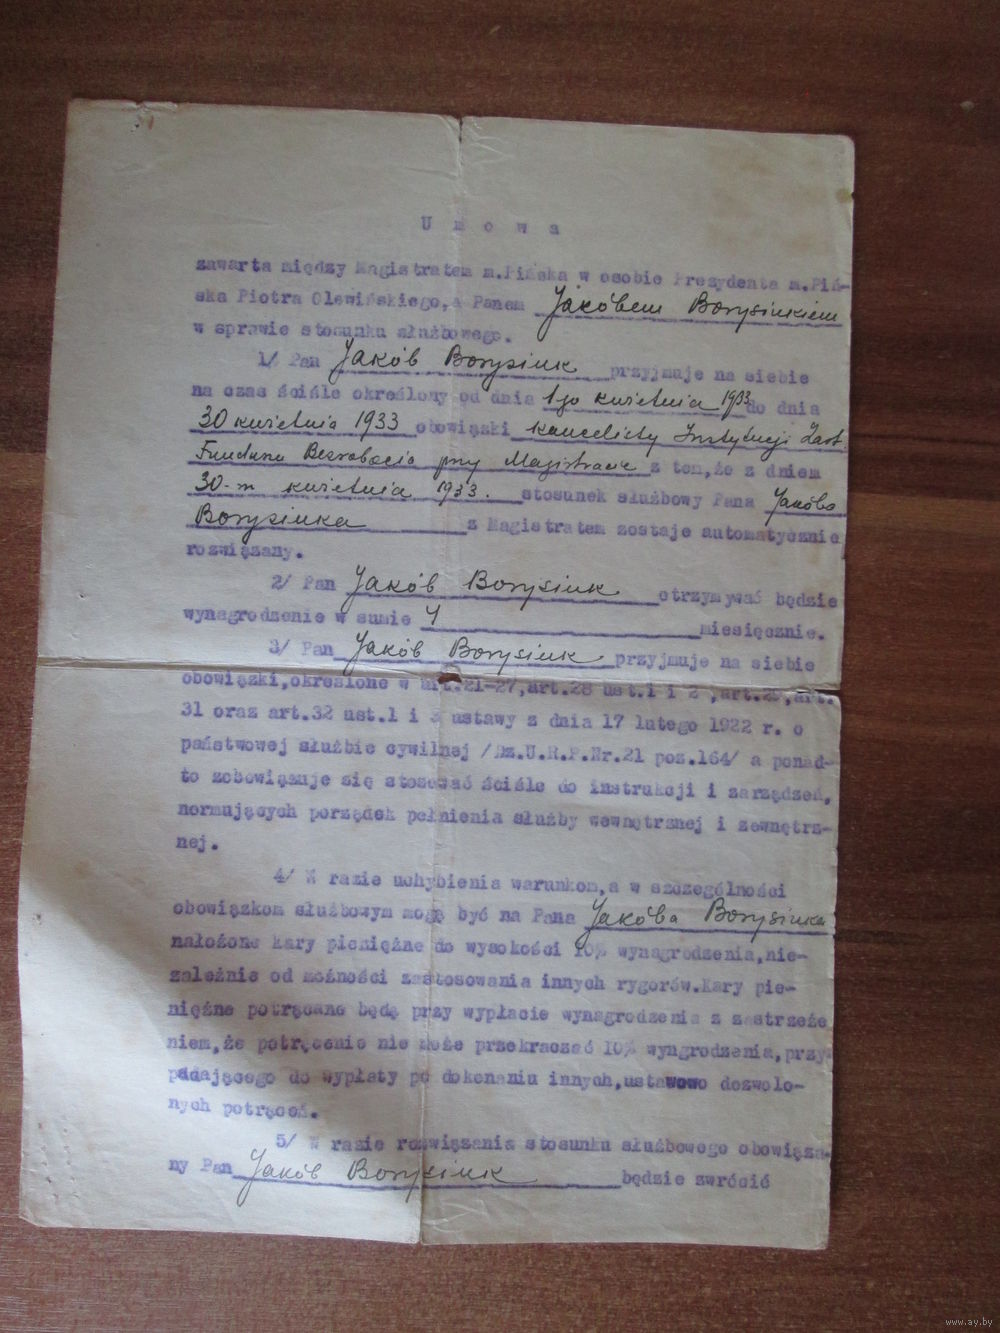 U m o w a
zawarta między Magistratem m.Pińska w osobie Prezydenta m.Piń-
ska Piotra Olewińskiego, a Panem Jakóbem Borysiukiem
w sprawie stosunku służbowego.
1/ Pan Jakób Borysiuk przyjmuje na siebie
na czas ściśle określony od dnia 1-go kwietnia 1933 do dnia
30 kwietnia 1933 obowiązki kancelisty Instytucji Zast.
Funduszu Bezrobocia przy Magistracie z tem,że z dniem
30-m kwietnia 1933. stosunek służbowy Pana Jakóba
Borysiuka z Magistratem zostaje automatycznie
rozwiązany.
2/ Pan Jakób Borysiuk otrzymywać będzie
wynagrodzenie w sumie miesięcznie.
3/ Pan Jakób Borysiuk przyjmuje na siebie
obowiązki,określone w art.21-27,art.28 ust.1 i 2 ,art.29,art.
31 oraz art.32 ust.1 i 3 ustawy z dnia 17 lutego 1922 r. o
państwowej służbie cywilnej /Dz.U.R.P.Nr.21 poz.164/ a ponad-
to zobowiązuje się stosować ściśle do instrukcji i zarządzeń,
normujących porządek pełnienia służby wewnętrznej i zewnętrz-
nej.
4/ W razie uchybienia warunkom,a w szczególności
obowiązkom służbowym mogą być na Pana Jakóba Borysiuka
nałożone kary pieniężne do wysokości 10% wynagrodzenia,nie-
zależnie od możności zastosowania innych rygorów.Kary pie-
niężne potrącane będą przy wypłacie wynagrodzenia z zastrzeże
niem,że potrącenie nie może przekraczać 10% wyngrodzenia,przy-
padającego do wypłaty po dokonaniu innych,ustawowo dozwolo-
nych potrąceń.
5/ W razie rozwiązania stosunku służbowego obowiąza-
ny Pan Jakób Borysiuk będzie zwrócić
www.ay.by